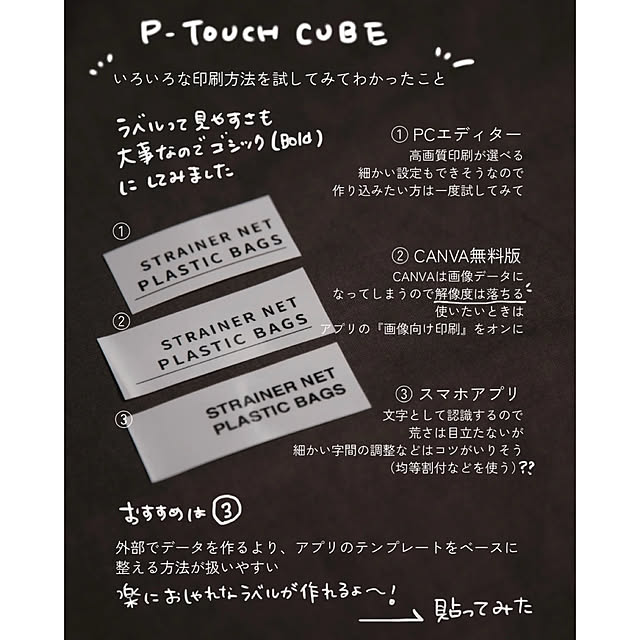 P-TOUCH CUBE
いろいろな印刷方法を試してみてわかったこと
ラベルって見やすさも
大事なのでゴシック(Bold)
にしてみました
① PCエディター
高画質印刷が選べる
細かい設定もできそうなので
作り込みたい方は一度試してみて
①
STRAINER NET
PLASTIC BAGS
② CANVA無料版
CANVAは画像データに
なってしまうので解像度は落ちる
使いたいときは
アプリの『画像向け印刷』をオンに
②
STRAINER NET
PLASTIC BAGS
③ スマホアプリ
文字として認識するので
荒さは目立たないが
細かい字間の調整などはコツがいりそう
(均等割付などを使う)??
③
STRAINER NET
PLASTIC BAGS
おすすめは③
外部でデータを作るより、アプリのテンプレートをベースに
整える方法が扱いやすい
楽におしゃれなラベルが作れるよ〜!
貼ってみた